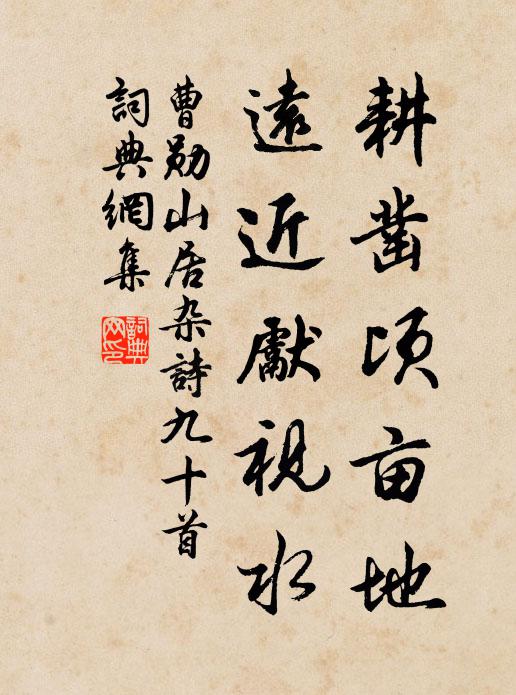 耕凿顷亩地
遠近獻視水
曹勋山居杂詩九十首
詞典網集
詞典网印